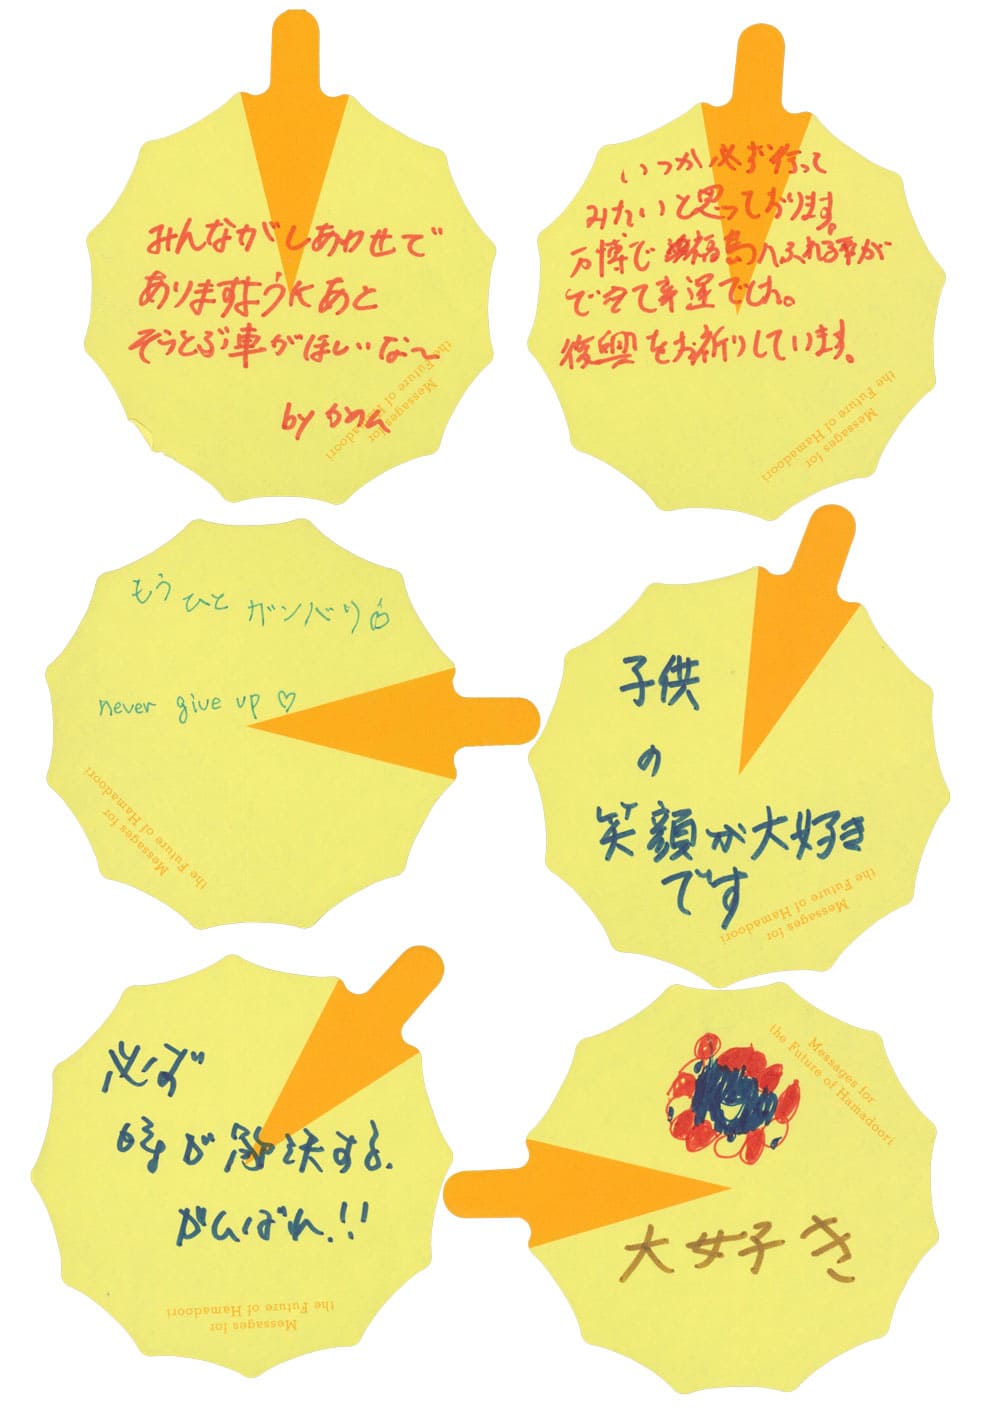 みんながしあわせで
ありますようにあと
そらとぶ車がほしいな〜
by かのん
Messages for
the Future of Hamadoori
いつか必ず行って
みたいと思っております。
万博で福島へふれる事が
できて幸運でした。
復興をお祈りしています。
Messages for
the Future of Hamadoori
もうひとガンバリ
never give up ♡
Messages for
the Future of Hamadoori
子供
の
笑顔が大好き
です
Messages for
the Future of Hamadoori
必ず
時が解決する.
がんばれ!!
Messages for
the Future of Hamadoori
Messages for
the Future of Hamadoori
大好き